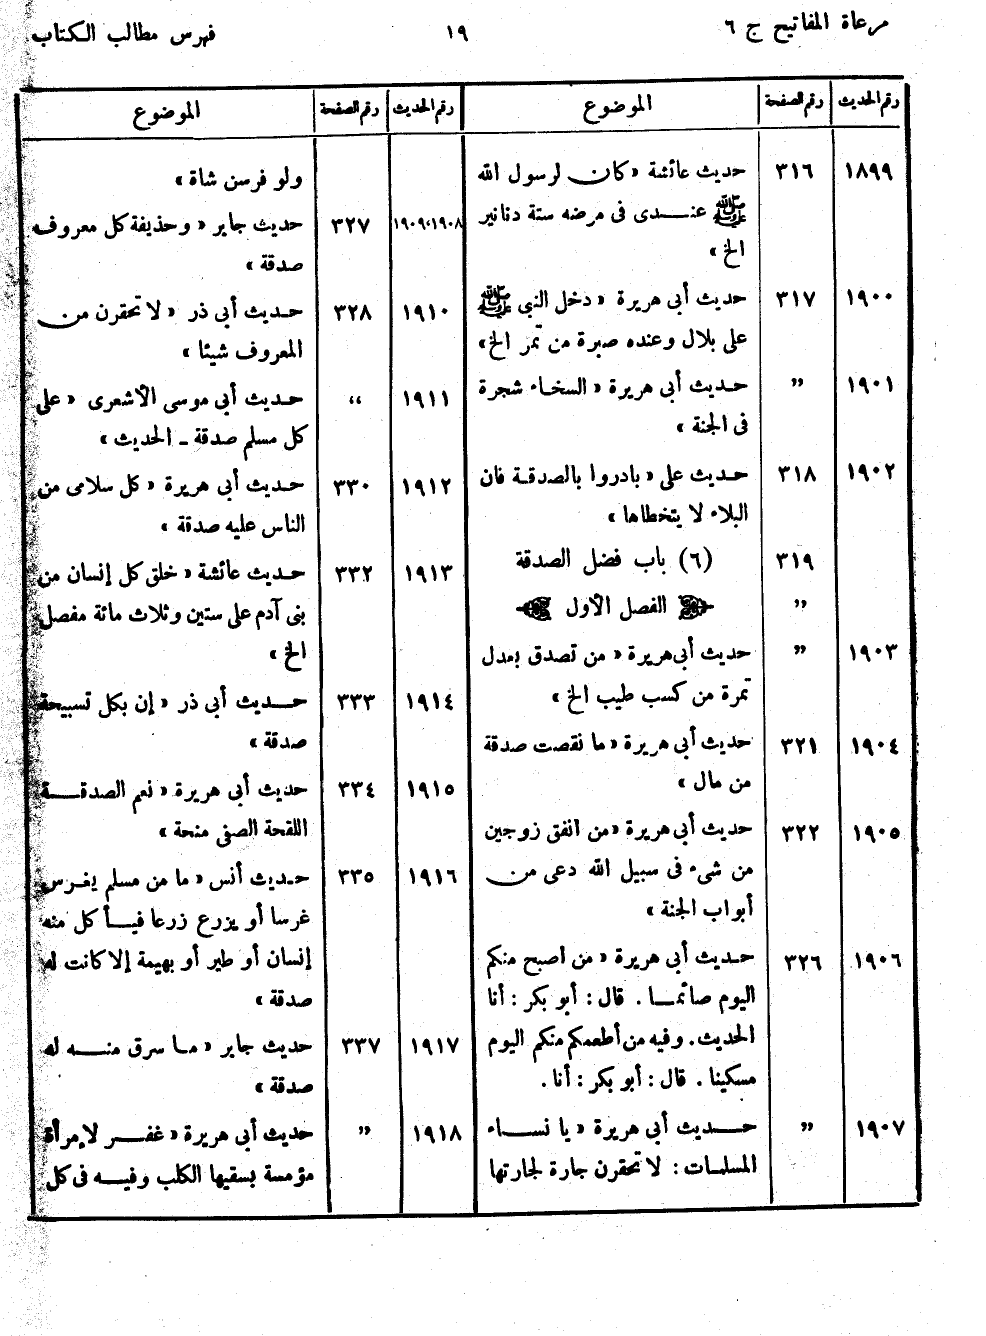 مرعاة المفاتيح ج ٦ ١٩ فهرس مطالب الكتاب
رقم الحديث رقم الصفحة الموضوع
١٨٩٩ ٣١٦ حديث عائشة «كان لرسول الله
ﷺ عندى فى مرضه ستة دنانير
الخ»
١٩٠٠ ٣١٧ حديث أبى هريرة «دخل النبى ﷺ
على بلال وعنده صبرة من تمر الخ»
١٩٠١ ” حديث أبى هريرة «السخاء شجرة
فى الجنة»
١٩٠٢ ٣١٨ حديث على «بادروا بالصدقة فان
البلاء لا يتخطاها»
٣١٩ (٦) باب فضل الصدقة
” الفصل الأول
١٩٠٣ ” حديث أبى هريرة «من تصدق بعدل
تمرة من كسب طيب الخ»
١٩٠٤ ٣٢١ حديث أبى هريرة «ما نقصت صدقة
من مال»
١٩٠٥ ٣٢٢ حديث أبى هريرة «من انفق زوجين
من شىء فى سبيل الله دعى من
أبواب الجنة»
١٩٠٦ ٣٢٦ حديث أبى هريرة «من اصبح منكم
اليوم صائما. قال: أبو بكر: أنا
الحديث. وفيه من أطعمكم منكم اليوم
مسكينا. قال: أبو بكر: أنا.
١٩٠٧ ” حديث أبى هريرة «يا نساء
المسلمات: لا تحقرن جارة لجارتها
رقم الحديث رقم الصفحة الموضوع
ولو فرسن شاة»
١٩٠٨،١٩٠٩ ٣٢٧ حديث جابر «وحذيفة كل معروف
صدقة»
١٩١٠ ٣٢٨ حديث أبى ذر «لا تحقرن من
المعروف شيئا»
١٩١١ ،، حديث أبى موسى الأشعرى «على
كل مسلم صدقة ـ الحديث»
١٩١٢ ٣٣٠ حديث أبى هريرة «كل سلامى من
الناس عليه صدقة»
١٩١٣ ٣٣٢ حديث عائشة «خلق كل إنسان من
بنى آدم على ستين وثلاث مائة مفصل
الخ»
١٩١٤ ٣٣٣ حديث أبى ذر «إن بكل تسبيحة
صدقة»
١٩١٥ ٣٣٤ حديث أبى هريرة «نعم الصدقة
اللقحة الصفى منحة»
١٩١٦ ٣٣٥ حديث أنس «ما من مسلم يغرس
غرسا أو يزرع زرعا فيأكل منه
إنسان أو طير أو بهيمة إلا كانت له
صدقة»
١٩١٧ ٣٣٧ حديث جابر «ما سرق منه له
صدقة»
١٩١٨ ” حديث أبى هريرة «غفر لإمرأة
مؤمسة بسقيها الكلب وفيه فى كل